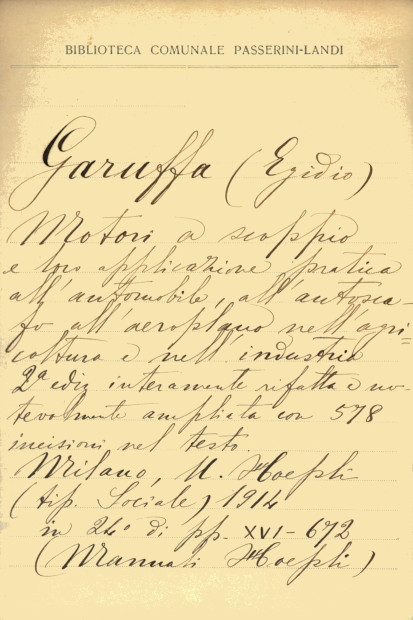 BIBLIOTECA COMUNALE PASSERINI-LANDI
Garuffa (Egidio)
Motori a scoppio
e loro applicazione pratica
all'automobile, all'autosca-
fo all'aeroplano nell'agri=
coltura e nell'industria
2ª ediz interamente rifatta e no-
tevolmente ampliata con 578
incisioni nel testo.
Milano, U. Hoepli
(tip. Sociale) 1914
in 24° di pp. XVI-672
(Manuali Hoepli)